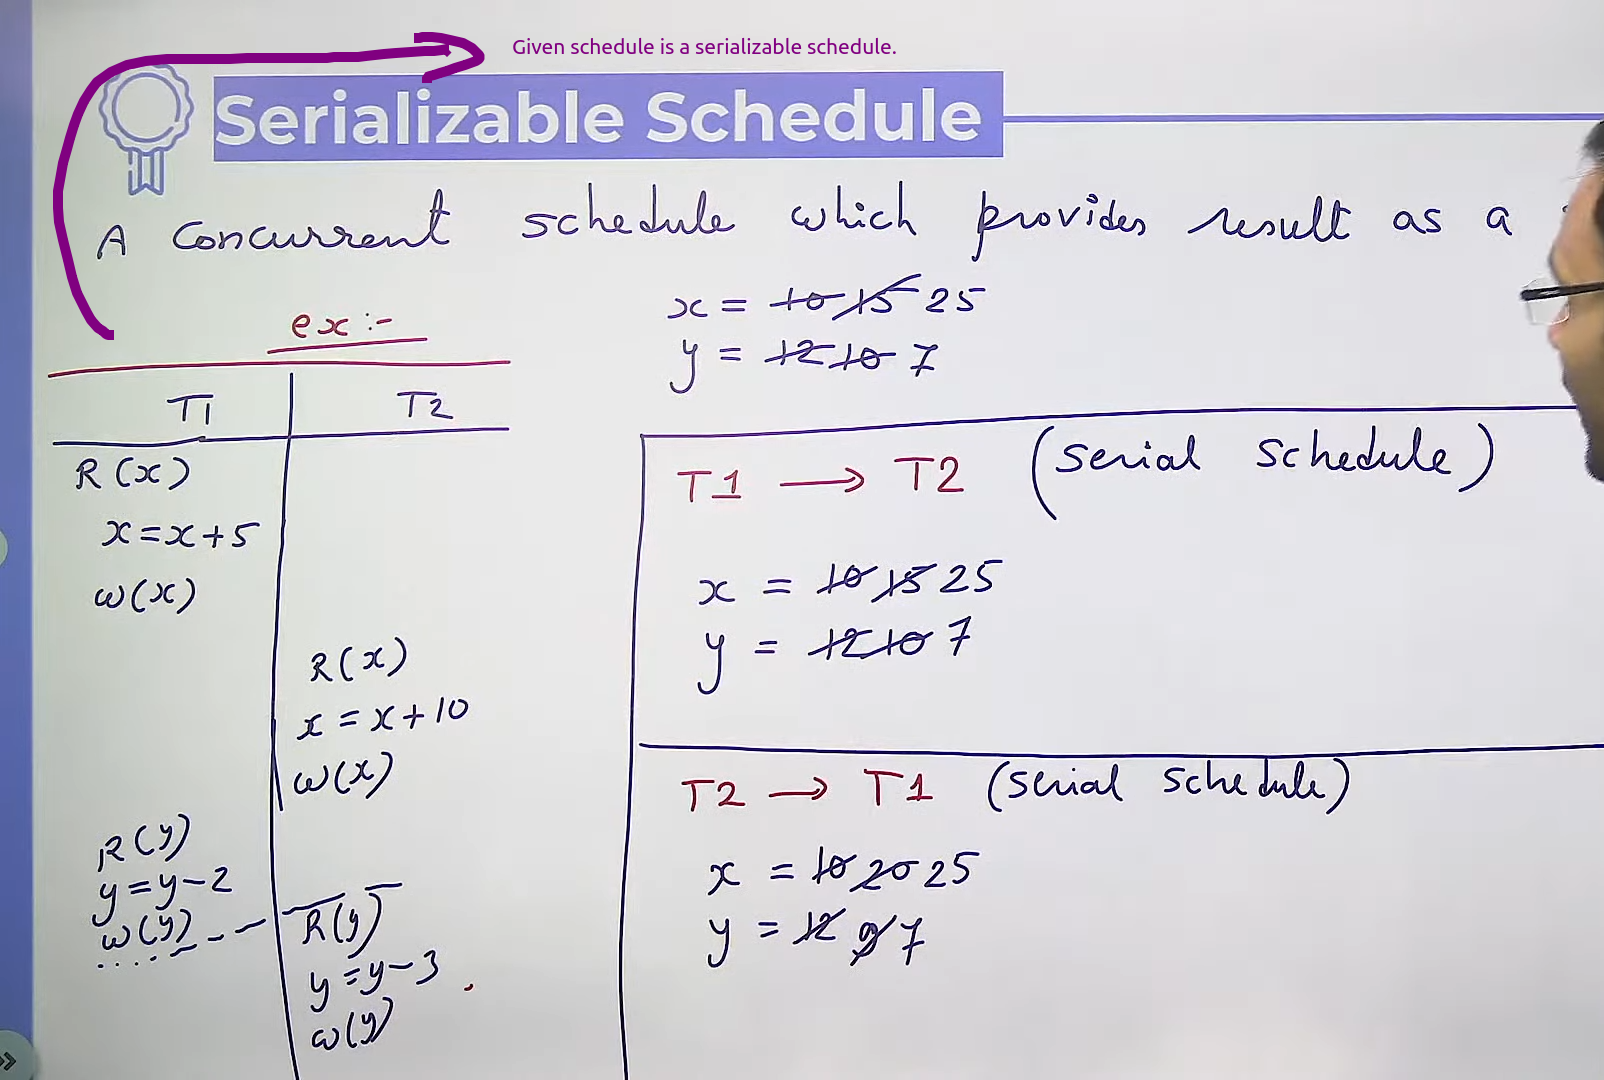 Given schedule is a serializable schedule.
Serializable Schedule
A concurrent schedule which provides result as a
ex:-
x = 10 15 25
y = 12 10 7
T1 T2
R(x)
x=x+5
w(x)
R(x)
x=x+10
w(x)
R(y)
y=y-2
w(y)
R(y)
y=y-3
w(y)
T1 → T2 (serial schedule)
x = 10 15 25
y = 12 10 7
T2 → T1 (serial schedule)
x = 10 20 25
y = 12 9 7